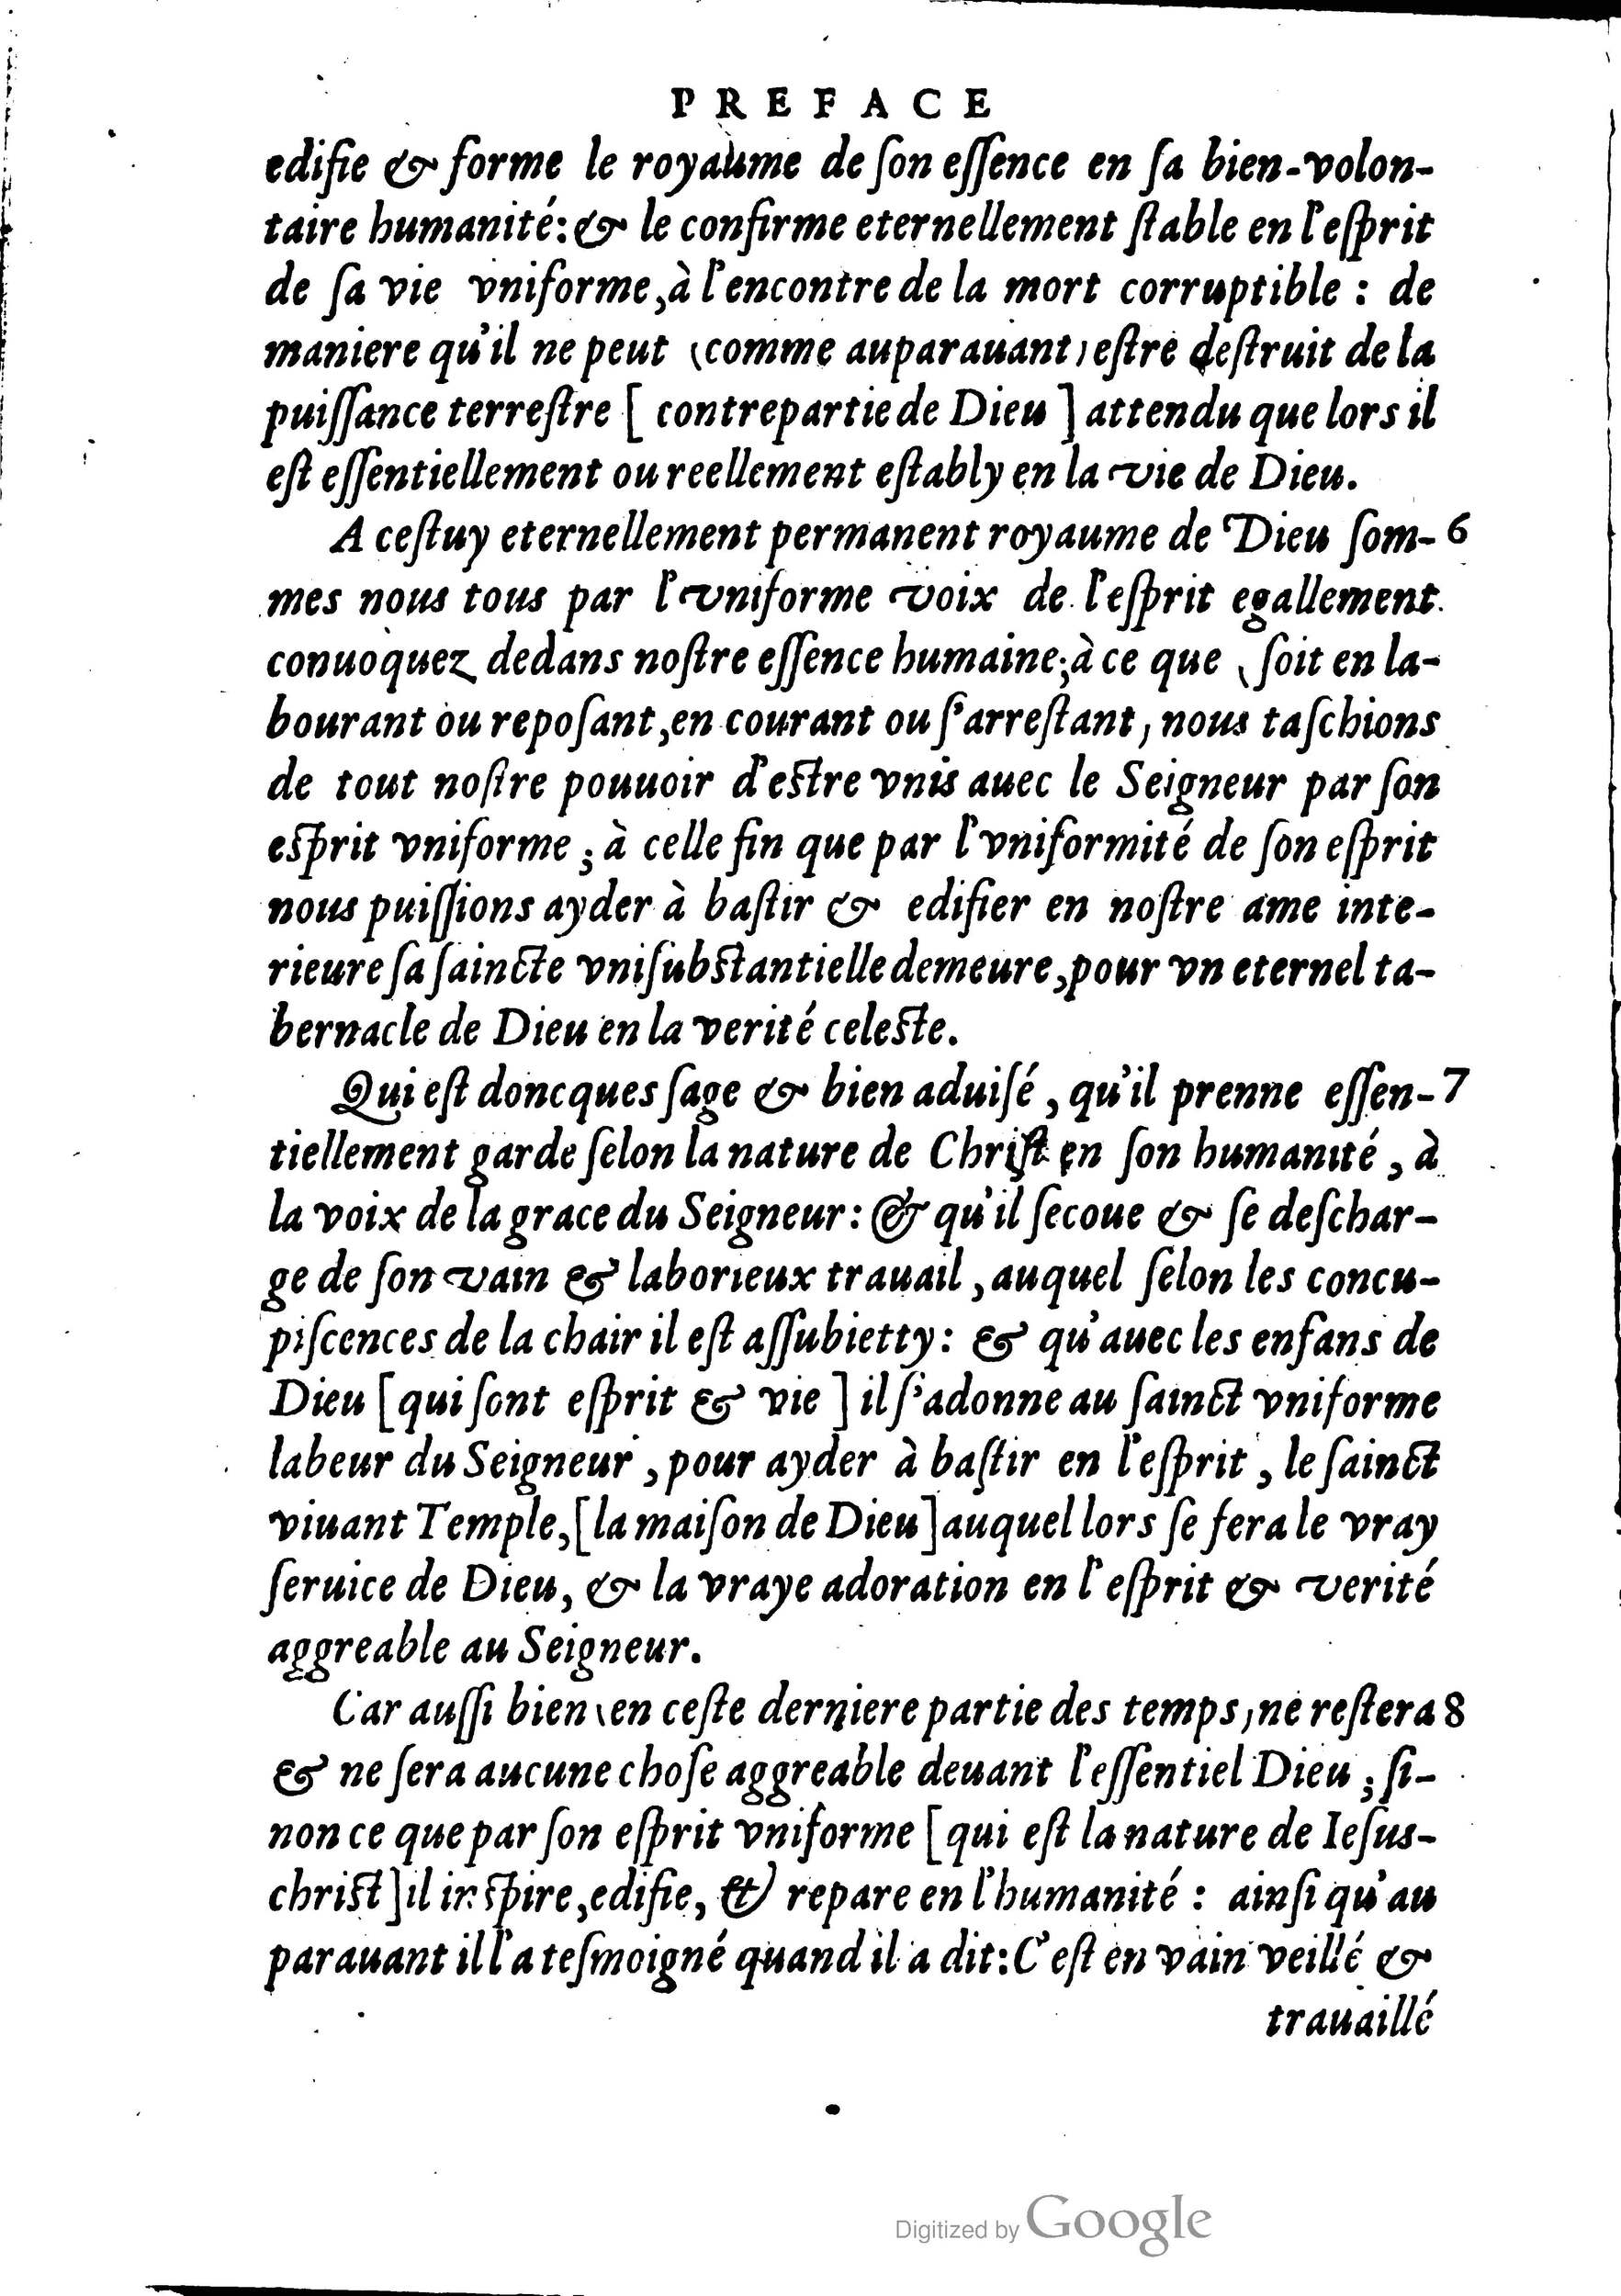 PREFACE
edifie & forme le royaume de ſon eſſence en ſa bien-volon-
taire humanité: & le confirme eternellement ſtable en l'eſprit
de ſa vie vniforme, à l'encontre de la mort corruptible : de
maniere qu'il ne peut (comme auparauant) eſtre deſtruit de la
puiſſance terreſtre [ contrepartie de Dieu ] attendu que lors il
eſt eſſentiellement ou reellement eſtably en la vie de Dieu.
A ceſtuy eternellement permanent royaume de Dieu ſom- 6
mes nous tous par l'vniforme voix de l'eſprit egallement
conuoquez dedans noſtre eſſence humaine; à ce que (ſoit en la-
bourant ou repoſant, en courant ou ſ'arreſtant) nous taſchions
de tout noſtre pouuoir d'eſtre vnis auec le Seigneur par ſon
eſprit vniforme ; à celle fin que par l'vniformité de ſon eſprit
nous puiſſions ayder à baſtir & edifier en noſtre ame inte-
rieure ſa ſaincte vniſubſtantielle demeure, pour vn eternel ta-
bernacle de Dieu en la verité celeſte.
Qui eſt doncques ſage & bien aduiſé, qu'il prenne eſſen- 7
tiellement garde ſelon la nature de Chriſt en ſon humanité, à
la voix de la grace du Seigneur: & qu'il ſecoue & ſe deſchar-
ge de ſon vain & laborieux trauail, auquel ſelon les concu-
piſcences de la chair il eſt aſſubietty: & qu'auec les enfans de
Dieu [qui ſont eſprit & vie ] il ſ'adonne au ſainct vniforme
labeur du Seigneur, pour ayder à baſtir en l'eſprit, le ſainct
viuant Temple, [la maiſon de Dieu] auquel lors ſe fera le vray
ſeruice de Dieu, & la vraye adoration en l'eſprit & verité
aggreable au Seigneur.
Car auſſi bien (en ceſte derniere partie des temps) ne reſtera 8
& ne ſera aucune choſe aggreable deuant l'eſſentiel Dieu ; ſi-
non ce que par ſon eſprit vniforme [qui eſt la nature de Ieſus-
chriſt] il inſpire, edifie, & repare en l'humanité : ainſi qu'au
parauant il l'a teſmoigné quand il a dit: C'eſt en vain veillé &
trauaillé
Digitized by Google